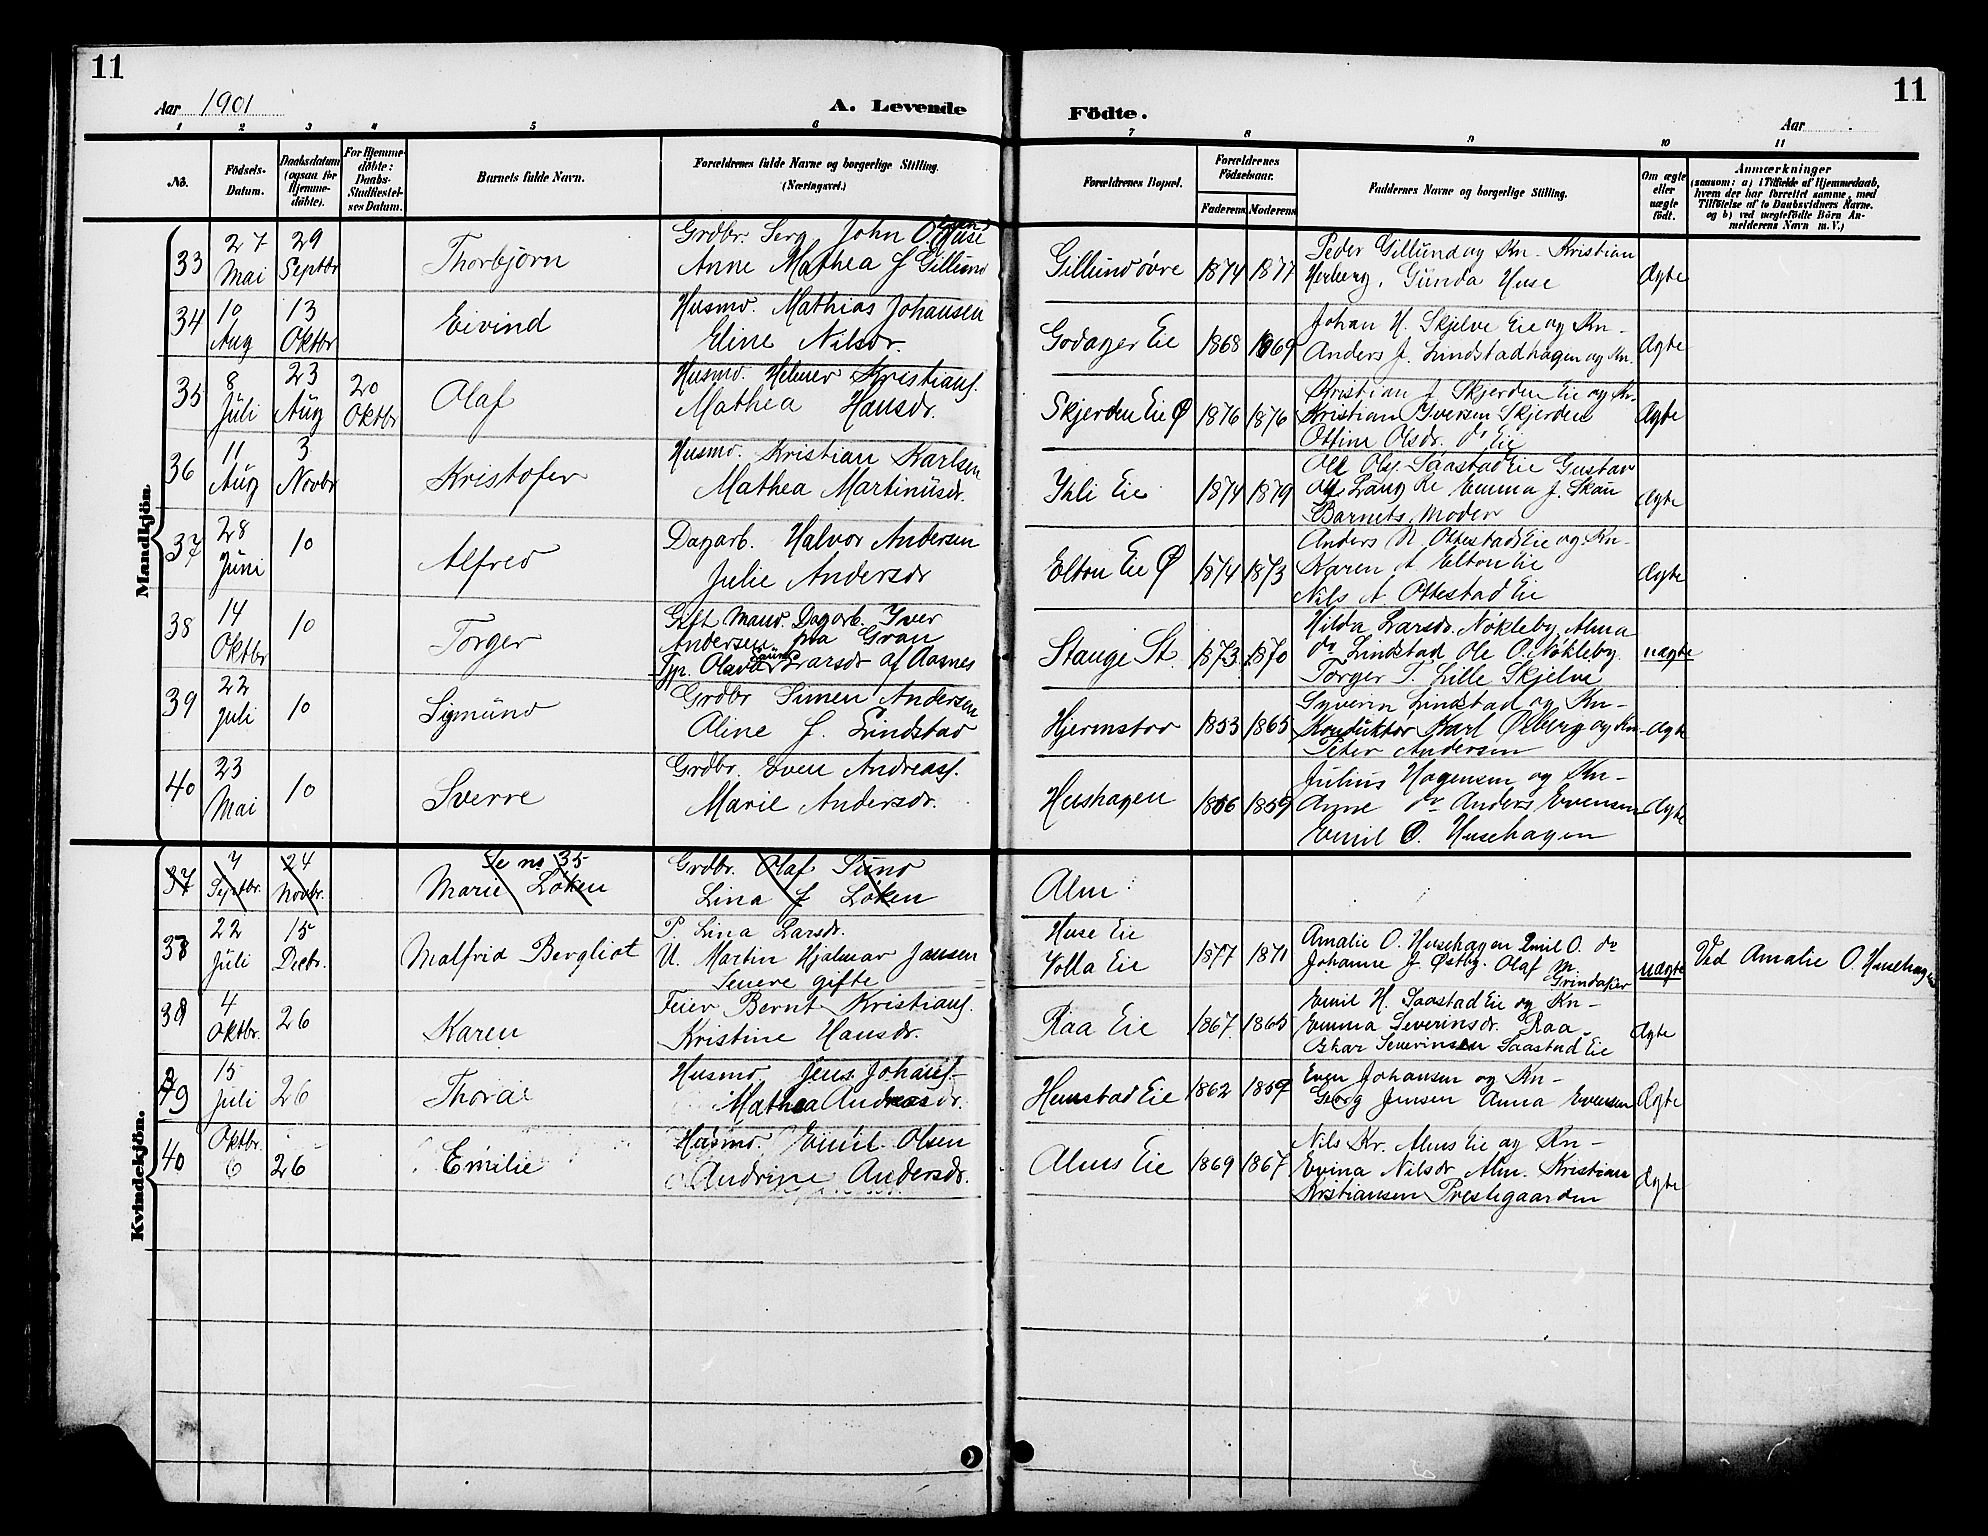 11
11
Aar 1901
A. Levende
Födte.
Aar
1 2 3 4 5 6 7 8 9 10 11
No.
Födsels-
Datum.
Daabsdatum
(ogsaa for
Hjemme-
döbte).
For Hjemme-
döbte:
Daabs-
Stadfestel-
ses Datum.
Barnets fulde Navn.
Forældrenes fulde Navne og borgerlige Stilling.
(Næringsvei.)
Forældrenes Bopæl.
Forældrenes
Födselsaar.
Faderens Moderens
Faddernes Navne og borgerlige Stilling.
Om ægte
eller
uægte
födt.
Anmærkninger
(saasom: a) i Tilfælde af Hjemmedaab,
hvem der har forrettet samme, med
Tilföielse af to Daabsvidners Navne.
og b) ved uægtefödte Börn An-
melderens Navn m. V.)
Mandkjön.
33
27
Mai
29
Septbr
Thorbjørn
Grdbr. Serg John O Huse
Anne Mathea J Gillund
Gillund øvre
1874 1877
Peder Gillund og Kn. Kristian
Herberg, Gunda Huse
Ægte
34
10
Aug
13
Oktbr
Eivind
Husmd. Mathias Johansen
Eline Nilsdr.
Godager Eie
1868 1869
Johan H. Skjelve Eie og Kn-
Anders J. Lindstadhagen og Kn.
Ægte
35
8
Juli
23
Aug
20
Oktbr
Olaf
Husmd. Helmer Kristians.
Mathea Hansdr.
Skjerden Eie Ø
1876 1876
Kristian J Skjerden Eie og Kn.
Kristian Iversen Skjerden
Ottine Olsdr. do Eie
Ægte
36
11
Aug
3
Novbr
Kristofer
Husmd. Kristian Karlsen
Mathea Martinusdr.
Ihli Eie
1874 1879
Ole Ols. Saastad Eie Gustav
Emma J. Skau
Barnets Moder
Ægte
37
28
Juni
10
Alfred
Dagarb. Halvor Andersen
Julie Andersdr
Elton Eie Ø
1874 1873
Anders N. Ottestad Eie og Kn-
Karen A Elton Eie
Nils A. Ottestad Eie
Ægte
38
14
Oktbr
10
Torger
Gift Mand. Dagarb. Iver
Andersen fra Gran
Larsdr af Aasnes
Stange St
1873 1870
Hilda Larsdr. Nökleby, Alma
do Lindstad Ole O. Nökleby
Torger T. Lille Skjelve
uægte
39
22
Juli
10
Sigmund
Grdbr Simen Andersen
Aline J. Lindstad
Hjermstad
1853 1865
Syverin Lindstad og Kn-
Konduktør Karl Ølberg og Kn-
Peter Andersen
Ægte
40
23
Mai
10
Sverre
Grdbr. Even Andreass.
Marie Andersdr.
Hushagen
1856 1859
Julius Hagensen og Kn-
Anne do Anders Evensen
Emil O. Husehagen
Ægte
Kvindekjön.
37
7
Septbr.
24
Novbr.
Se no 35
Marie Löken
Grdbr. Olaf Sund
Lina J Löken
Alm
38
22
Juli
15
Decbr.
Malfrid Bergliot
P. Lina Larsdr.
U. Martin Hjalmar Jansen
Senere gifte
Huse Eie
Volla Eie
1877 1871
Amalie O. Husehagen Emil O. do
Johanne J. Østby. Olaf M.
Grindaker
uægte
Ved Amalie O. Husehagen
38
4
Oktbr.
26
Karen
Feier Bernt Kristians.
Kristine Hansdr.
Raa Eie
1867 1865
Emil H. Saastad Eie og Kn-
Emma Severinsdr. Raa
Oskar Severinsen Saastad Eie
Ægte
39
15
Juli
26
Thora
Husmd Jens Johans.
Mathea Andreasdr.
Hemstad Eie
1862 1859
Even Johansen og Kn-
Georg Jensen Anna Evensen
Ægte
40
Oktbr.
6
26
Emilie
Husmd. Emil Olsen
Andrine Andersdr.
Alms Eie
1869 1867
Nils Kr. Alms Eie og Kn-
Evina Nilsdr Alm. Kristian
Kristiansen Prestegaarden
Ægte